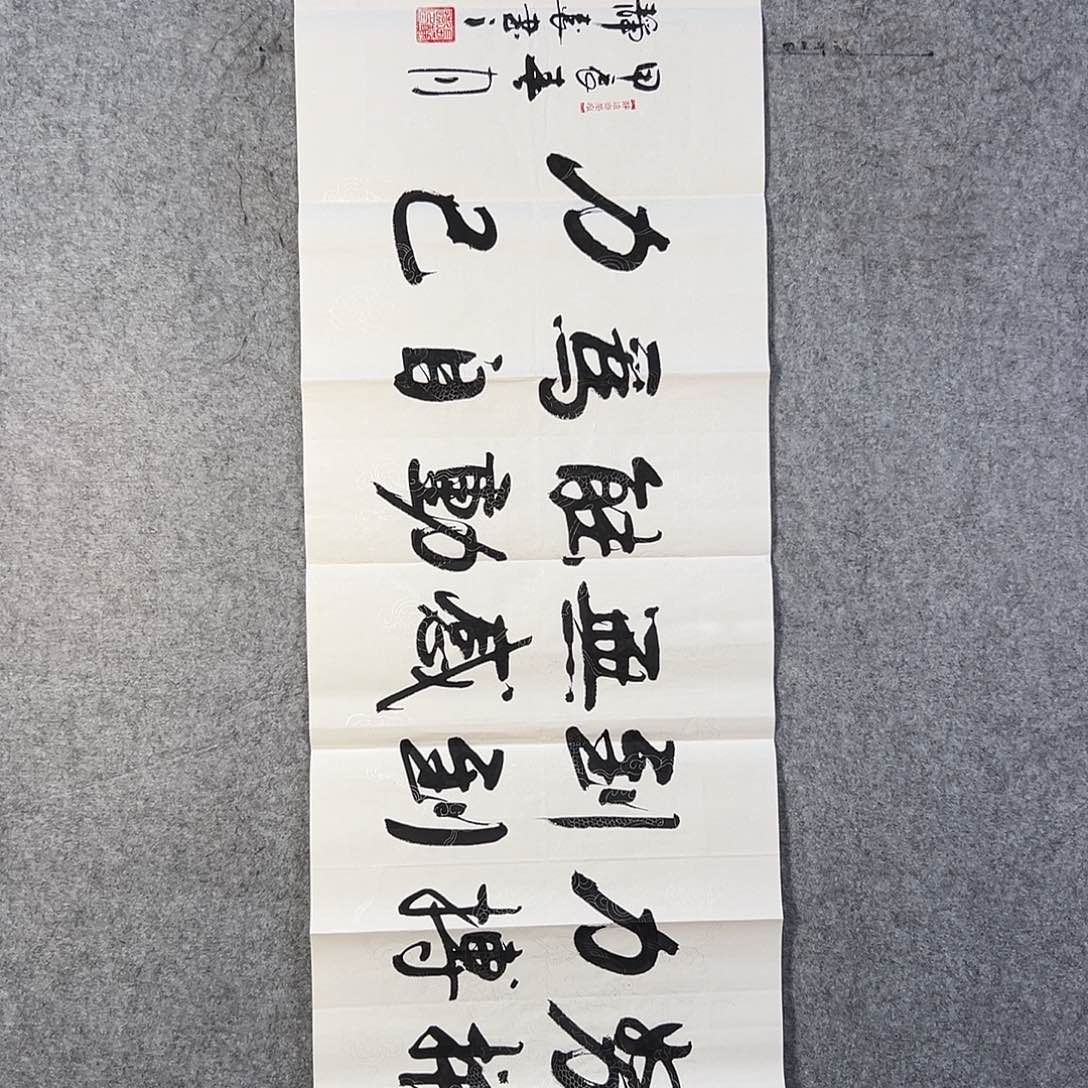 努力到無能為力
拼搏到感動自己
甲辰春月